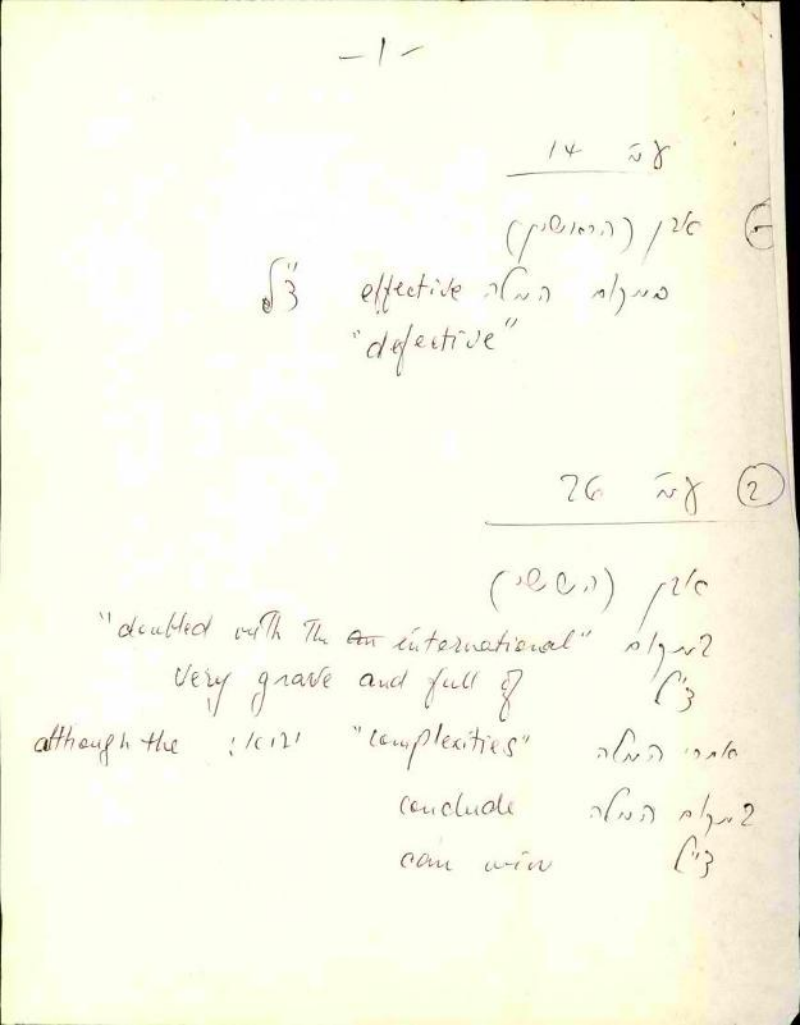 -1-
עמ' 14
① אבן (הראשון)
במקום המלה effective צ"ל
"defective"
② עמ' 26
אבן (הששי)
במקום "doubled with the international"
צ"ל very grave and full of
אחרי המלה "complexities" יבוא: although the
במקום המלה conclude
צ"ל can win